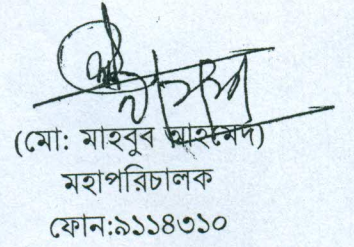 (মো: মাহবুব আহমেদ)
মহাপরিচালক
ফোন:৯১১৪৩১০